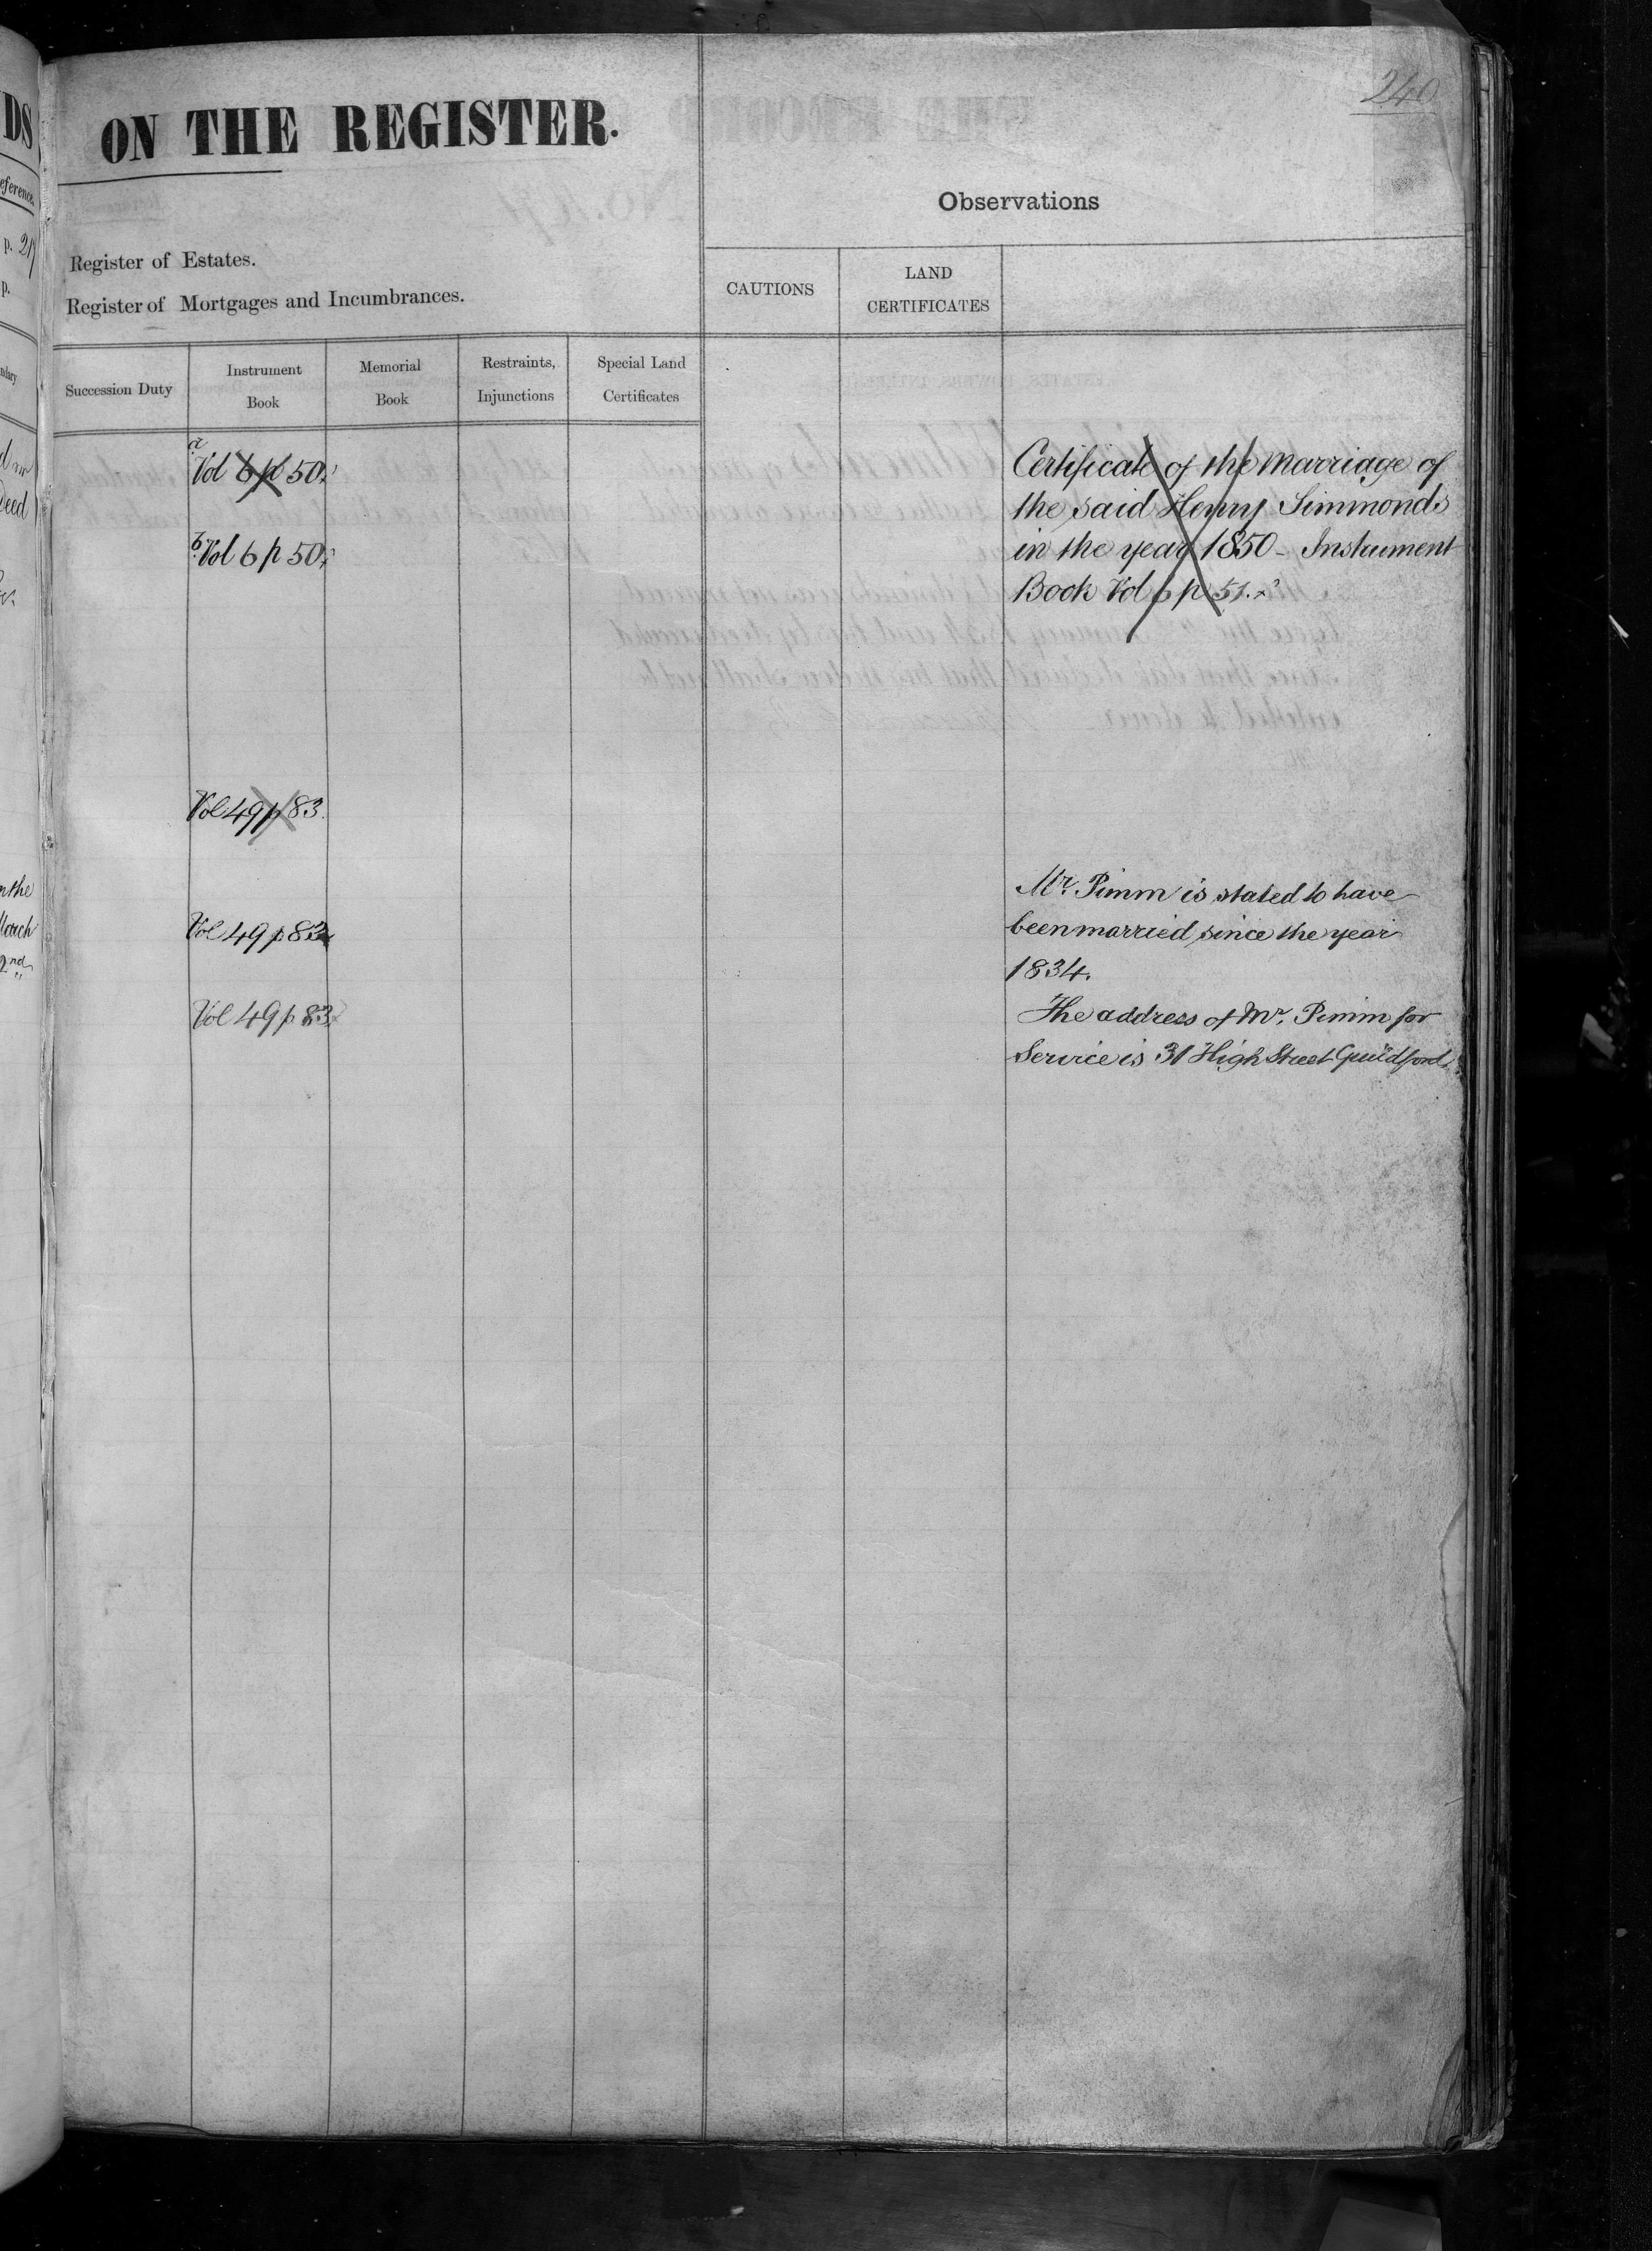 240
ON THE REGISTER.
Observations
Register of Estates.
Register of Mortgages and Incumbrances.
CAUTIONS
LAND
CERTIFICATES
Succession Duty
Instrument
Book
Memorial
Book
Restraints,
Injunctions
Special Land
Certificates
a
Vol 6 p 50.
Certificate of the Marriage of
the said Henry Simmonds
b. Vol 6 p 50.
in the year 1850 - Instrument
Book Vol 6 p 51.
Vol 49 p 83.
Mr. Pimm is stated to have
Vol 49 p 83
been married since the year
1834.
Vol 49 p 83
The address of Mr. Pimm for
Service is 31 High Street Guildford.
DS
eference.
p. 217
p.
Deed
n the
March
2nd